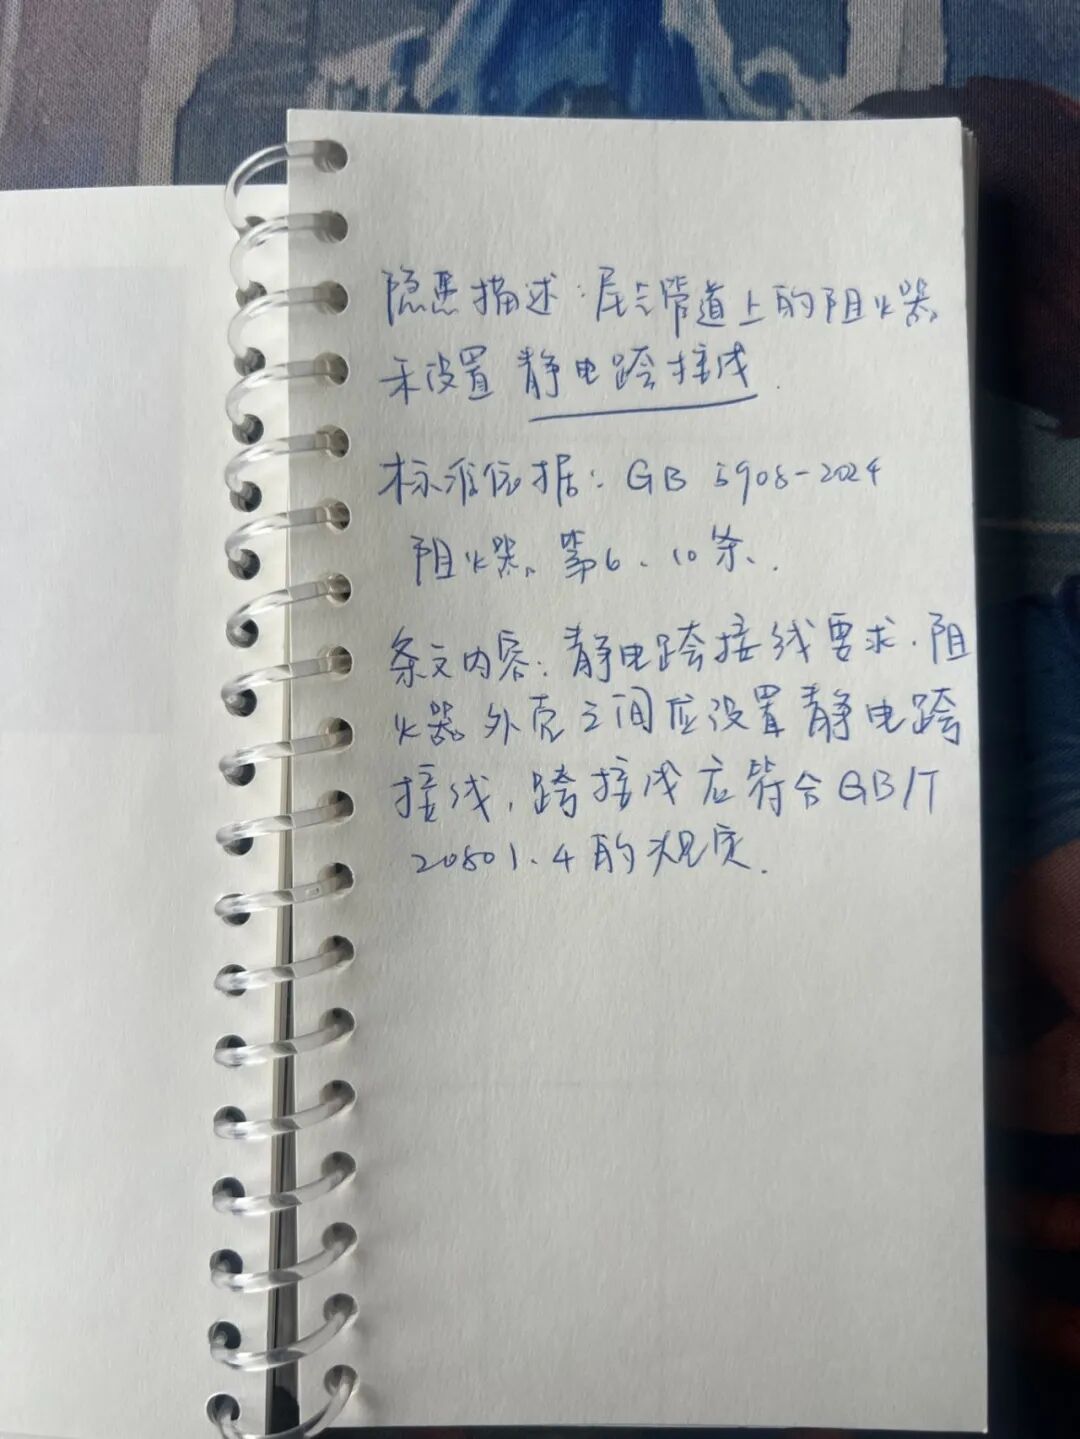 隐患描述：尾气管道上的阻火器
未设置静电跨接线.
标准依据：GB 5908-2024
阻火器 第6.10条.
条文内容：静电跨接线要求.阻
火器外壳之间应设置静电跨
接线，跨接线应符合GB/T
20801.4的规定.